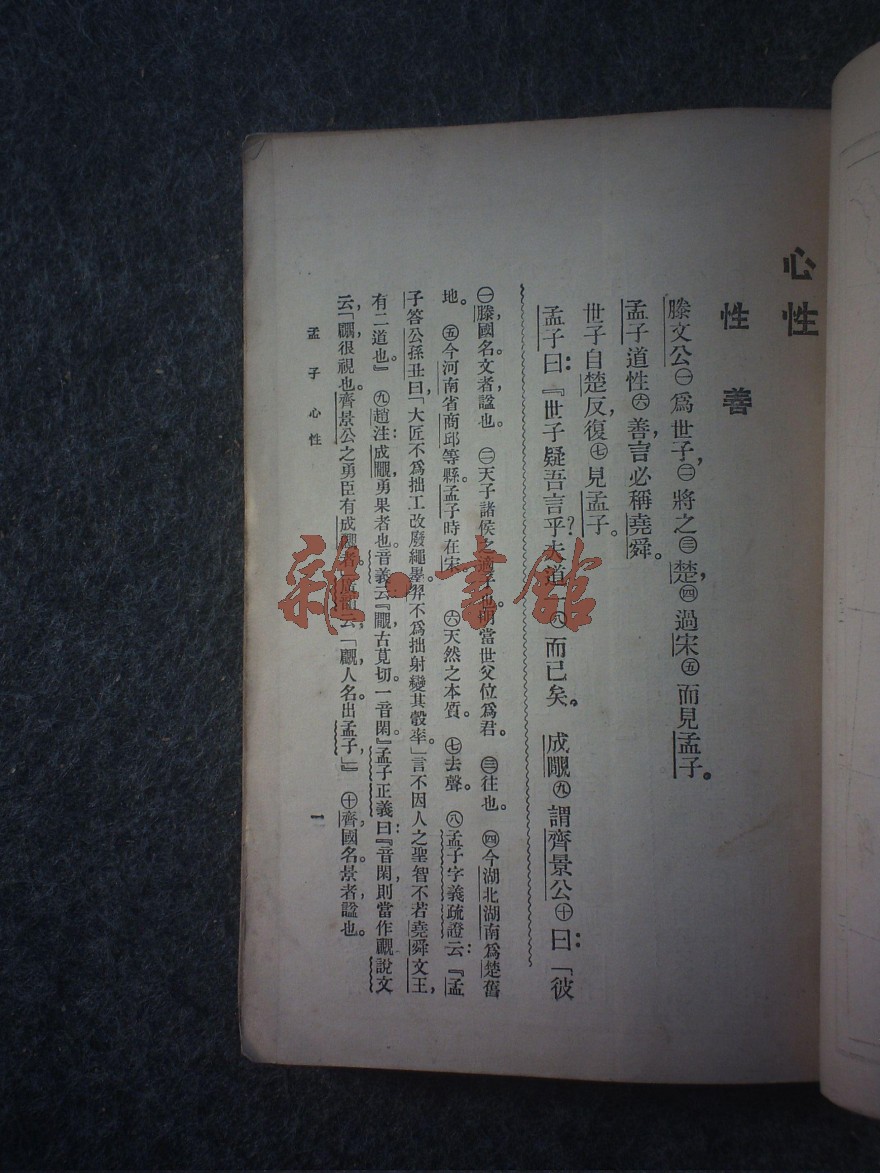 心性
性善
滕文公㊀爲世子，㊁將之㊂楚，㊃過宋㊄而見孟子。
孟子道性㊅善，言必稱堯舜。
世子自楚反，復㊆見孟子。
孟子曰：『世子疑吾言乎？夫道一㊇而已矣。成覵㊈謂齊景公㊉曰：「彼
㊀滕，國名。文者，諡也。 ㊁天子諸侯之適子也。明當世父位爲君。 ㊂往也。 ㊃今湖北湖南爲楚舊
地。 ㊄今河南省商邱等縣。孟子時在宋。 ㊅天然之本質。 ㊆去聲。 ㊇孟子字義疏證云：『孟
子答公孫丑曰，「大匠不爲拙工改廢繩墨。羿不爲拙射變其彀率。」言不因人之聖智不若堯舜文王，
有二道也。』 ㊈趙注：成覵，勇果者也。音義云『覵古莧切。一音閑。』孟子正義曰：『音閑，則當作覸說文
云，「覸，很視也。齊景公之勇臣有成覸者。」云，「覸，人名。出孟子」』 ㊉齊，國名。景者，諡也。
孟子心性
一
雜·書館